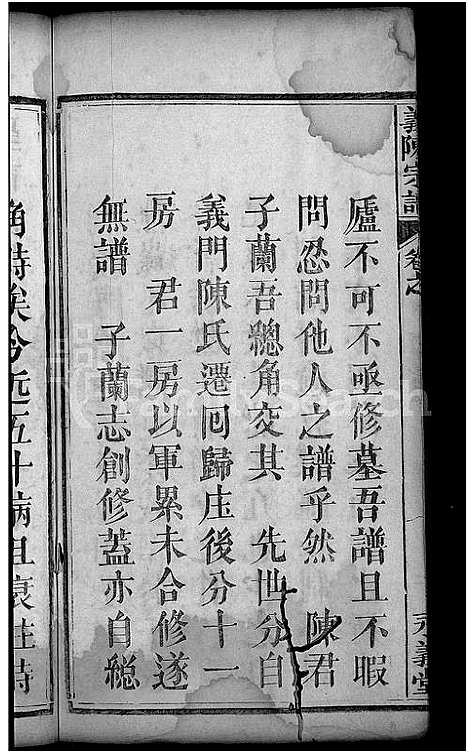 義陳宗譜 卷之
永義堂
廬不可不亟修墓吾譜且不暇
問忍問他人之譜乎然 陳君
子蘭吾總角交其 先世分自
義門陳氏遷回歸庄後分十一
房 君一房以軍累未合修遂
無譜 子蘭志創修蓋亦自總
角時矣今近五十病且衰往時